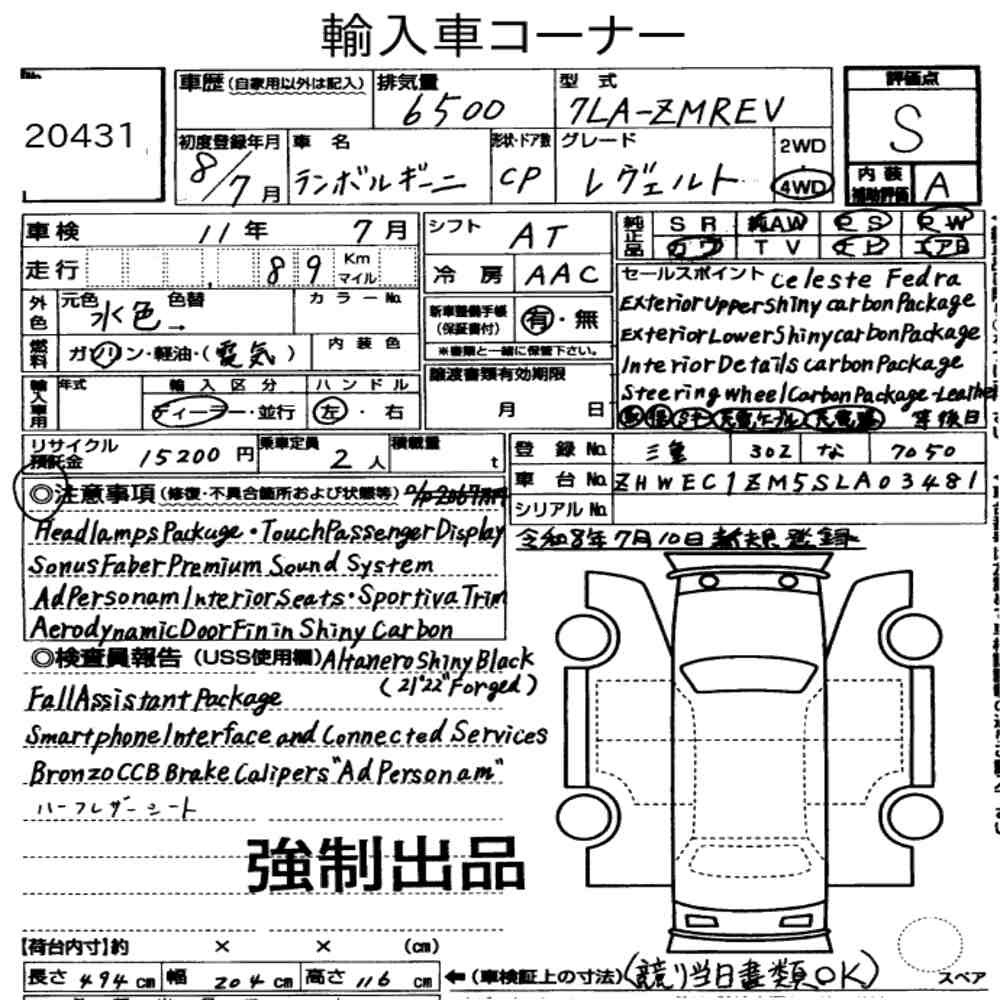 輸入車コーナー
20431
車歴(自家用以外は記入)
排気量 6500
型式 7LA-ZMREV
評価点 S
初度登録年月 8/7月
車名 ランボルギーニ
形状・ドア数 CP
グレード レヴェルト
2WD
4WD
内装補助評価 A
車検 11年 7月
シフト AT
純正品 SR 純AW PS PW
カワ TV ナビ エアB
走行 89 Km マイル
冷房 AAC
セールスポイント Celeste Fedra
Exterior Upper Shiny carbon Package
Exterior Lower Shiny carbon Package
Interior Details carbon Package
Steering Wheel Carbon Package-Leather
外色 元色 水色 色替 → カラーNo.
新車整備手帳(保証書付) 有・無
※書類と一緒に保管下さい。
燃料 ガソリン・軽油・(電気) 内装色
譲渡書類有効期限
月 日
輸入車用 年式 輸入区分 ディーラー・並行 ハンドル 左・右
車後日
リサイクル預託金 15200円 乗車定員 2人 積載量 t
登録No. 三重 302 な 7050
車台No. ZHWEC1ZM5SLA03481
シリアルNo.
◎注意事項(修復・不具合箇所および状態等) o/p 2067万円
令和8年7月10日新規登録
Headlamps Package・Touch Passenger Display
Sonus Faber Premium Sound System
Ad Personam Interior Seats・Sportiva Trim
Aerodynamic Door Fin in Shiny Carbon
◎検査員報告(USS使用欄) Altanero Shiny Black
(21"22" Forged)
Fall Assistant Package
Smartphone Interface and Connected Services
Bronzo CCB Brake Calipers "Ad Personam"
ハーフレザーシート
強制出品
【荷台内寸】約 × × (cm)
長さ 494 cm 幅 204 cm 高さ 116 cm ←(車検証上の寸法)(競り当日書類OK)
スペア